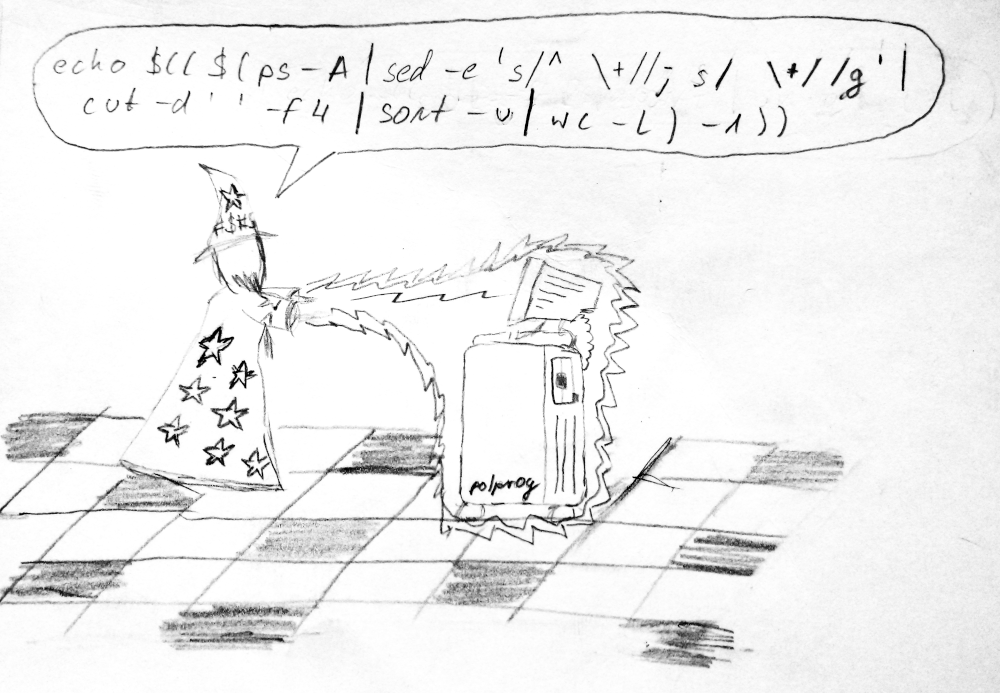 echo $(( $( ps -A | sed -e 's/^ \+//; s/  \+/ /g' |
cut -d ' ' -f 4 | sort -u | wc -l ) -1 ))
#$#$
polprog